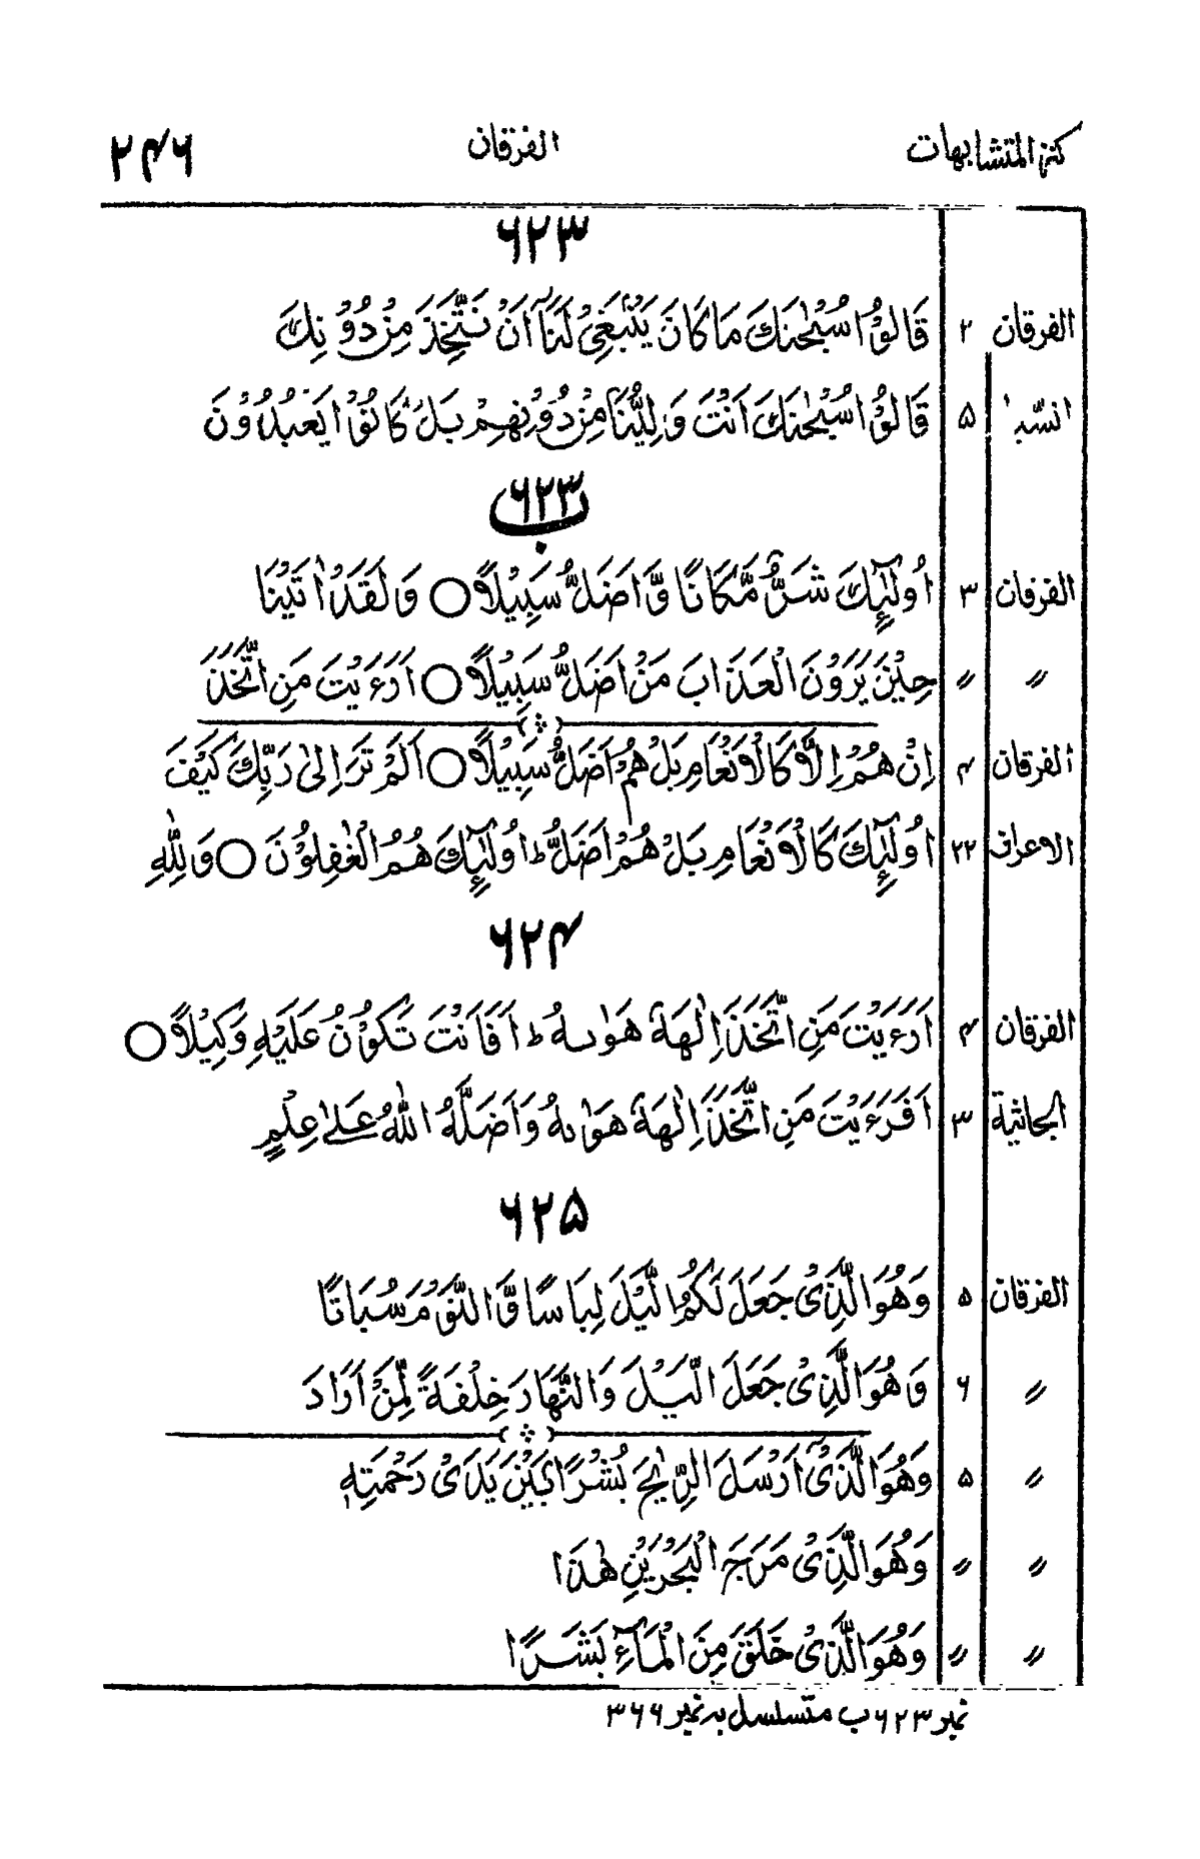 كنز المتشابهات الفرقان ۲۴۶
۶۲۳
الفرقان ۲ قَالُوْا سُبْحٰنَكَ مَا كَانَ يَنْۢبَغِىْ لَنَآ اَنْ نَتَّخِذَ مِنْ دُوْنِكَ
السّبا ۵ قَالُوْا سُبْحٰنَكَ اَنْتَ وَلِيُّنَا مِنْ دُوْنِهِمْ بَلْ كَانُوْا يَعْبُدُوْنَ
۶۲۳ ب
الفرقان ۳ اُولٰٓئِكَ شَرٌّ مَّكَانًا وَّاَضَلُّ سَبِيْلًا ○ وَلَقَدْ اٰتَيْنَا
〃 〃 حِيْنَ يَرَوْنَ الْعَذَابَ مَنْ اَضَلُّ سَبِيْلًا ○ اَرَءَيْتَ مَنِ اتَّخَذَ
الفرقان ۴ اِنْ هُمْ اِلَّا كَالْاَنْعَامِ بَلْ هُمْ اَضَلُّ سَبِيْلًا ○ اَلَمْ تَرَ اِلٰى رَبِّكَ كَيْفَ
الاعراف ۲۲ اُولٰٓئِكَ كَالْاَنْعَامِ بَلْ هُمْ اَضَلُّ ط اُولٰٓئِكَ هُمُ الْغٰفِلُوْنَ ○ وَلِلّٰهِ
۶۲۴
الفرقان ۴ اَرَءَيْتَ مَنِ اتَّخَذَ اِلٰهَهٗ هَوٰىهُ ط اَفَاَنْتَ تَكُوْنُ عَلَيْهِ وَكِيْلًا ○
الجاثية ۳ اَفَرَءَيْتَ مَنِ اتَّخَذَ اِلٰهَهٗ هَوٰىهُ وَاَضَلَّهُ اللّٰهُ عَلٰى عِلْمٍ
۶۲۵
الفرقان ۵ وَهُوَ الَّذِىْ جَعَلَ لَكُمُ الَّيْلَ لِبَاسًا وَّالنَّوْمَ سُبَاتًا
〃 ۶ وَهُوَ الَّذِىْ جَعَلَ الَّيْلَ وَالنَّهَارَ خِلْفَةً لِّمَنْ اَرَادَ
〃 ۵ وَهُوَ الَّذِىْٓ اَرْسَلَ الرِّيٰحَ بُشْرًا بَيْنَ يَدَىْ رَحْمَتِهٖ
〃 〃 وَهُوَ الَّذِىْ مَرَجَ الْبَحْرَيْنِ هٰذَا
〃 〃 وَهُوَ الَّذِىْ خَلَقَ مِنَ الْمَآءِ بَشَرًا
نمبر ۶۲۳ب متسلسل بہ نمبر ۳۶۶